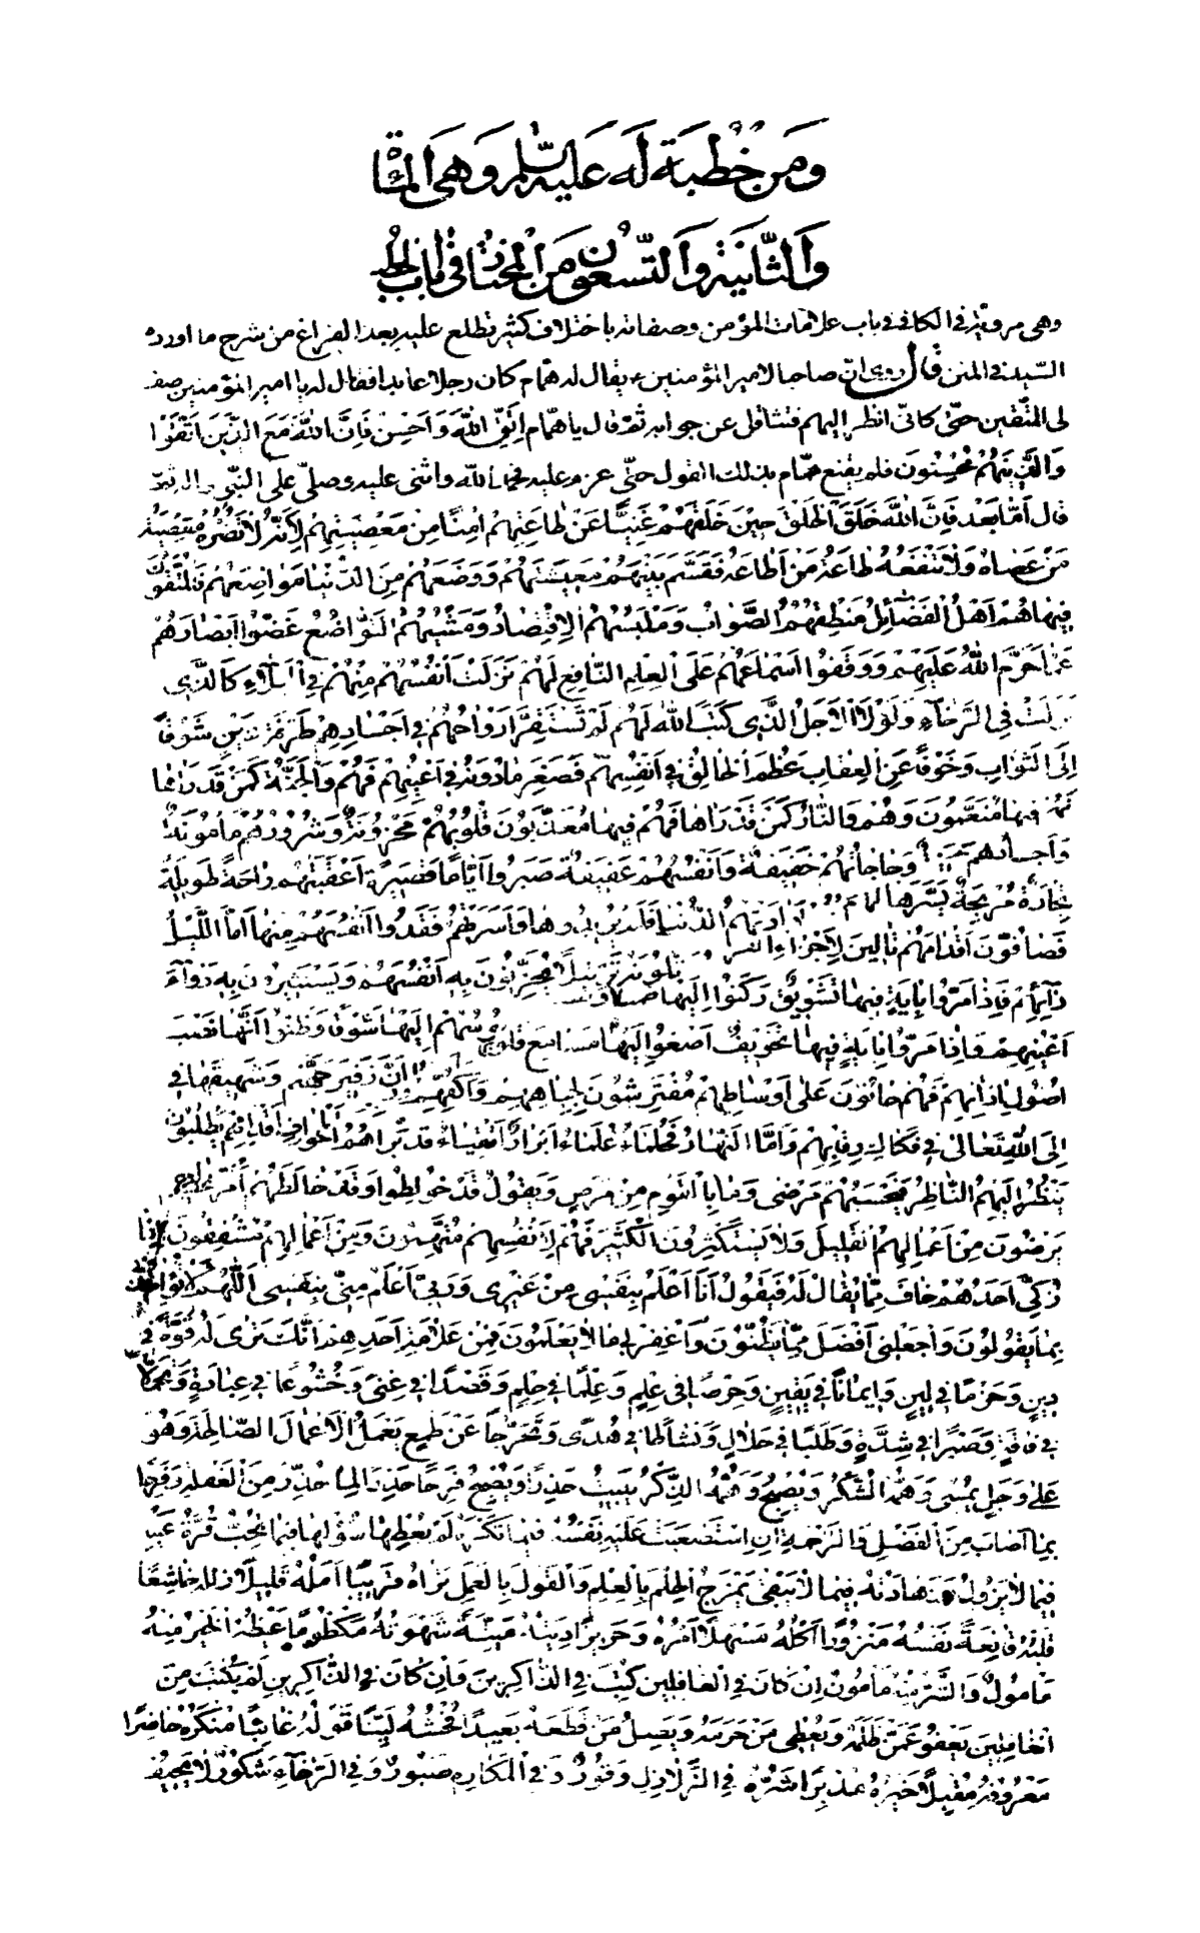 ومن خطبة له عليه السلم وهى المأة
والثانية والتسعون من المختار فى باب الخطب
وهى مروية فى الكافى فى باب علامات المؤمن وصفاته باختلاف كثير تطلع عليه بعد الفراغ من شرح ما اورده
السيد فى المتن قال روى ان صاحبا لامير المؤمنين ع يقال له همام كان رجلا عابدا فقال له يا امير المؤمنين صف
لى المتقين حتى كانى انظر اليهم فتثاقل عن جوابه ثم قال يا همام اِتَّقِ اللّٰهَ وَاَحْسِنْ فَاِنَّ اللّٰهَ مَعَ الَّذِينَ اتَّقَوْا
وَالَّذِينَ هُمْ مُحْسِنُونَ فلم يقنع همام بذلك القول حتى عزم عليه فحمد اللّٰه واثنى عليه وصلى على النبى واله ثم
قال اَمَّا بَعْدُ فَاِنَّ اللّٰهَ خَلَقَ الْخَلْقَ حِيْنَ خَلَقَهُمْ غَنِيًّا عَنْ طَاعَتِهِمْ اٰمِنًا مِنْ مَعْصِيَتِهِمْ لِاَنَّهُ لَا تَضُرُّهُ مَعْصِيَةُ
مَنْ عَصَاهُ وَلَا تَنْفَعُهُ طَاعَةُ مَنْ اَطَاعَهُ فَقَسَمَ بَيْنَهُمْ مَعِيشَتَهُمْ وَوَضَعَهُمْ مِنَ الدُّنْيَا مَوَاضِعَهُمْ فَالْمُتَّقُونَ
فِيهَا هُمْ اَهْلُ الْفَضَائِلِ مَنْطِقُهُمُ الصَّوَابُ وَمَلْبَسُهُمُ الْاِقْتِصَادُ وَمَشْيُهُمُ التَّوَاضُعُ غَضُّوا اَبْصَارَهُمْ
عَمَّا حَرَّمَ اللّٰهُ عَلَيْهِمْ وَوَقَفُوا اَسْمَاعَهُمْ عَلَى الْعِلْمِ النَّافِعِ لَهُمْ نَزَلَتْ اَنْفُسُهُمْ مِنْهُمْ فِى الْبَلَاءِ كَالَّذِى
نَزَلَتْ فِى الرَّخَآءِ وَلَوْلَا الْاَجَلُ الَّذِى كَتَبَ اللّٰهُ لَهُمْ لَمْ تَسْتَقِرَّ اَرْوَاحُهُمْ فِى اَجْسَادِهِمْ طَرْفَةَ عَيْنٍ شَوْقًا
اِلَى الثَّوَابِ وَخَوْفًا عَنِ الْعِقَابِ عَظُمَ الْخَالِقُ فِى اَنْفُسِهِمْ فَصَغُرَ مَا دُونَهُ فِى اَعْيُنِهِمْ فَهُمْ وَالْجَنَّةُ كَمَنْ قَدْ رَاٰهَا
فَهُمْ فِيهَا مُنَعَّمُونَ وَهُمْ وَالنَّارُ كَمَنْ قَدْ رَاٰهَا فَهُمْ فِيهَا مُعَذَّبُونَ قُلُوبُهُمْ مَحْزُونَةٌ وَشُرُورُهُمْ مَأْمُونَةٌ
وَاَجْسَادُهُمْ وَحَاجَاتُهُمْ خَفِيفَةٌ وَاَنْفُسُهُمْ عَفِيفَةٌ صَبَرُوا اَيَّامًا قَصِيرَةً اَعْقَبَتْهُمْ رَاحَةً طَوِيلَةً
تِجَارَةٌ مُرْبِحَةٌ يَسَّرَهَا لَهُمْ اَرَادَتْهُمُ الدُّنْيَا فَلَمْ يُرِيدُوهَا وَاَسَرَتْهُمْ فَفَدَوْا اَنْفُسَهُمْ مِنْهَا اَمَّا اللَّيْلُ
فَصَافُّونَ اَقْدَامَهُمْ تَالِينَ لِاَجْزَاءِ يَتْلُونَهُ تَرْتِيلًا يُحَزِّنُونَ بِهِ اَنْفُسَهُمْ وَيَسْتَثِيرُونَ بِهِ دَوَآءَ
دَآئِهِمْ فَاِذَا مَرُّوا بِاٰيَةٍ فِيهَا تَشْوِيقٌ رَكَنُوا اِلَيْهَا طَمَعًا
نُفُوسُهُمْ اِلَيْهَا شَوْقًا وَظَنُّوا اَنَّهَا نَصْبَ
اَعْيُنِهِمْ وَاِذَا مَرُّوا بِاٰيَةٍ فِيهَا تَخْوِيفٌ اَصْغَوْا اِلَيْهَا مَسَامِعَ قُلُوبِهِمْ اَنَّ زَفِيرَ جَهَنَّمَ وَشَهِيقَهَا فِى
اُصُولِ اٰذَانِهِمْ فَهُمْ حَانُونَ عَلَى اَوْسَاطِهِمْ مُفْتَرِشُونَ لِجِبَاهِهِمْ وَاَكُفِّهِمْ
اِلَى اللّٰهِ تَعَالٰى فِى فَكَاكِ رِقَابِهِمْ وَاَمَّا النَّهَارُ فَحُلَمَاءُ عُلَمَاءُ اَبْرَارٌ اَتْقِيَاءُ قَدْ بَرَاهُمُ الْخَوْفُ
يَنْظُرُ اِلَيْهِمُ النَّاظِرُ فَيَحْسَبُهُمْ مَرْضٰى وَمَا بِالْقَوْمِ مِنْ مَرَضٍ وَيَقُولُ قَدْ خُولِطُوا وَقَدْ خَالَطَهُمْ اَمْرٌ عَظِيمٌ
يَرْضَوْنَ مِنْ اَعْمَالِهِمُ الْقَلِيلَ وَلَا يَسْتَكْثِرُونَ الْكَثِيرَ فَهُمْ لِاَنْفُسِهِمْ مُتَّهِمُونَ وَمِنْ اَعْمَالِهِمْ مُشْفِقُونَ اِذَا
زُكِّىَ اَحَدُهُمْ خَافَ مِمَّا يُقَالُ لَهُ فَيَقُولُ اَنَا اَعْلَمُ بِنَفْسِى مِنْ غَيْرِى وَرَبِّى اَعْلَمُ مِنِّى بِنَفْسِى اَللّٰهُمَّ لَا تُؤَاخِذْنِى
بِمَا يَقُولُونَ وَاجْعَلْنِى اَفْضَلَ مِمَّا يَظُنُّونَ وَاغْفِرْ لِى مَا لَا يَعْلَمُونَ فَمِنْ عَلَامَةِ اَحَدِهِمْ اَنَّكَ تَرٰى لَهُ قُوَّةً فِى
دِينٍ وَحَزْمًا فِى لِينٍ وَاِيمَانًا فِى يَقِينٍ وَحِرْصًا فِى عِلْمٍ وَعِلْمًا فِى حِلْمٍ وَقَصْدًا فِى غِنًى وَخُشُوعًا فِى عِبَادَةٍ وَتَجَمُّلًا
فِى فَاقَةٍ وَصَبْرًا فِى شِدَّةٍ وَطَلَبًا فِى حَلَالٍ وَنَشَاطًا فِى هُدًى وَتَحَرُّجًا عَنْ طَمَعٍ يَعْمَلُ الْاَعْمَالَ الصَّالِحَةَ وَهُوَ
عَلَى وَجَلٍ يُمْسِى وَهَمُّهُ الشُّكْرُ وَيُصْبِحُ وَهَمُّهُ الذِّكْرُ يَبِيتُ حَذِرًا وَيُصْبِحُ فَرِحًا حَذِرًا لِمَا حُذِّرَ مِنَ الْغَفْلَةِ وَفَرِحًا
بِمَا اَصَابَ مِنَ الْفَضْلِ وَالرَّحْمَةِ اِنِ اسْتَصْعَبَتْ عَلَيْهِ نَفْسُهُ فِيمَا تَكْرَهُ لَمْ يُعْطِهَا سُؤْلَهَا فِيمَا تُحِبُّ قُرَّةُ عَيْنِهِ
فِيمَا لَا يَزُولُ وَزَهَادَتُهُ فِيمَا لَا يَبْقٰى يَمْزَجُ الْحِلْمَ بِالْعِلْمِ وَالْقَوْلَ بِالْعَمَلِ تَرَاهُ قَرِيبًا اَمَلُهُ قَلِيلًا زَلَلُهُ خَاشِعًا
قَلْبُهُ قَانِعَةً نَفْسُهُ مَنْزُورًا اَكْلُهُ سَهْلًا اَمْرُهُ وَحَرِيزًا دِينُهُ مَيِّتَةً شَهْوَتُهُ مَكْظُومًا غَيْظُهُ الْخَيْرُ مِنْهُ
مَأْمُولٌ وَالشَّرُّ مِنْهُ مَأْمُونٌ اِنْ كَانَ فِى الْغَافِلِينَ كُتِبَ فِى الذَّاكِرِينَ وَاِنْ كَانَ فِى الذَّاكِرِينَ لَمْ يُكْتَبْ مِنَ
الْغَافِلِينَ يَعْفُو عَمَّنْ ظَلَمَهُ وَيُعْطِى مَنْ حَرَمَهُ وَيَصِلُ مَنْ قَطَعَهُ بَعِيدًا فُحْشُهُ لَيِّنًا قَوْلُهُ غَائِبًا مُنْكَرُهُ حَاضِرًا
مَعْرُوفُهُ مُقْبِلًا خَيْرُهُ مُدْبِرًا شَرُّهُ فِى الزَّلَازِلِ وَقُورٌ وَفِى الْمَكَارِهِ صَبُورٌ وَفِى الرَّخَآءِ شَكُورٌ لَا يَحِيفُ